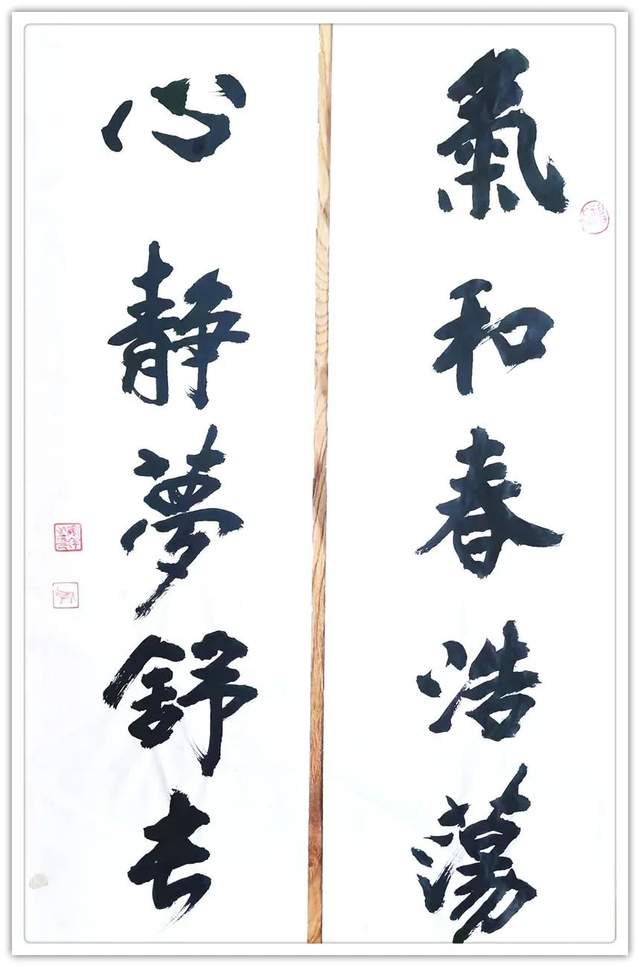 氣和春浩蕩
心靜夢舒长